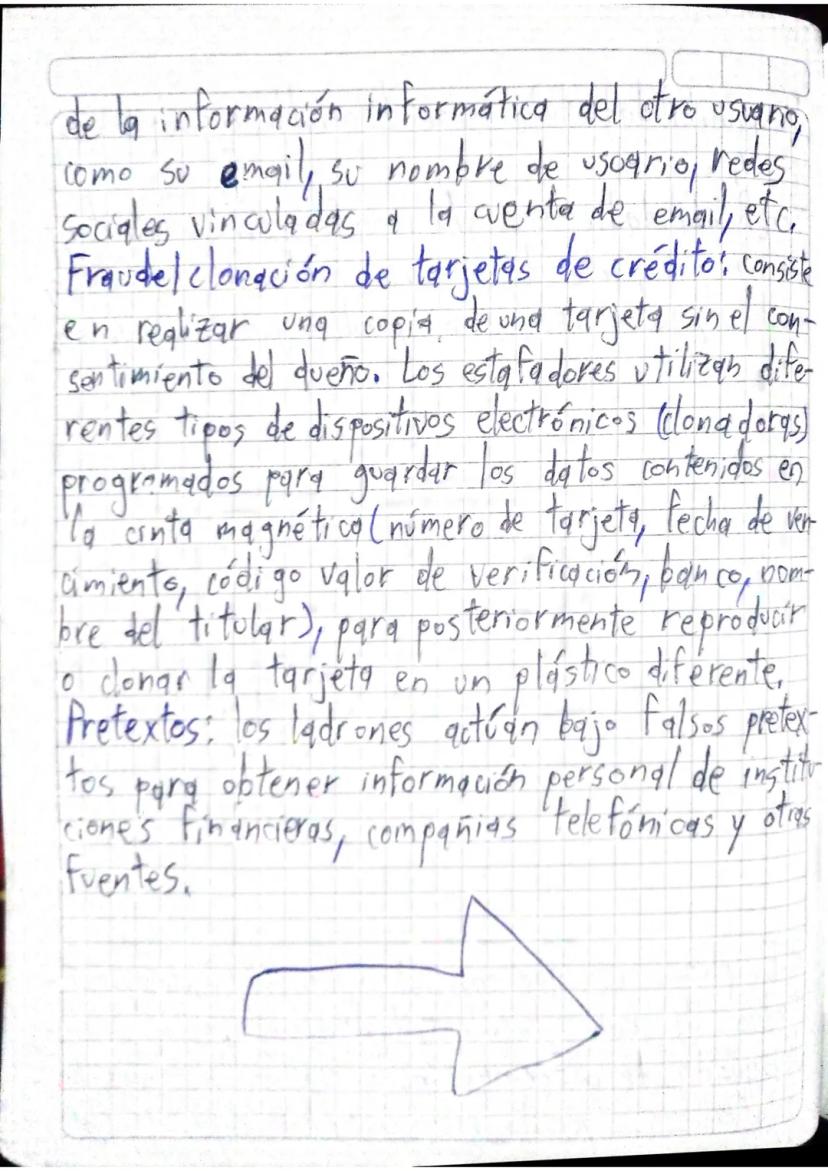 de la información informática del otro usuario,
como su email, su nombre de usuario, redes
sociales vinculadas a la cuenta de email, etc.
Fraude/clonación de tarjetas de crédito: consiste
en realizar una copia de una tarjeta sin el con-
sentimiento del dueño. Los estafadores utilizan dife-
rentes tipos de dispositivos electrónicos (clonadoras)
programados para guardar los datos contenidos en
la cinta magnética (número de tarjeta, fecha de ven-
cimiento, código valor de verificación, banco, nom-
bre del titular), para posteriormente reproducir
o clonar la tarjeta en un plástico diferente.
Pretextos: los ladrones actúan bajo falsos pretex-
tos para obtener información personal de institu
ciones financieras, compañias telefónicas y otras
fuentes.